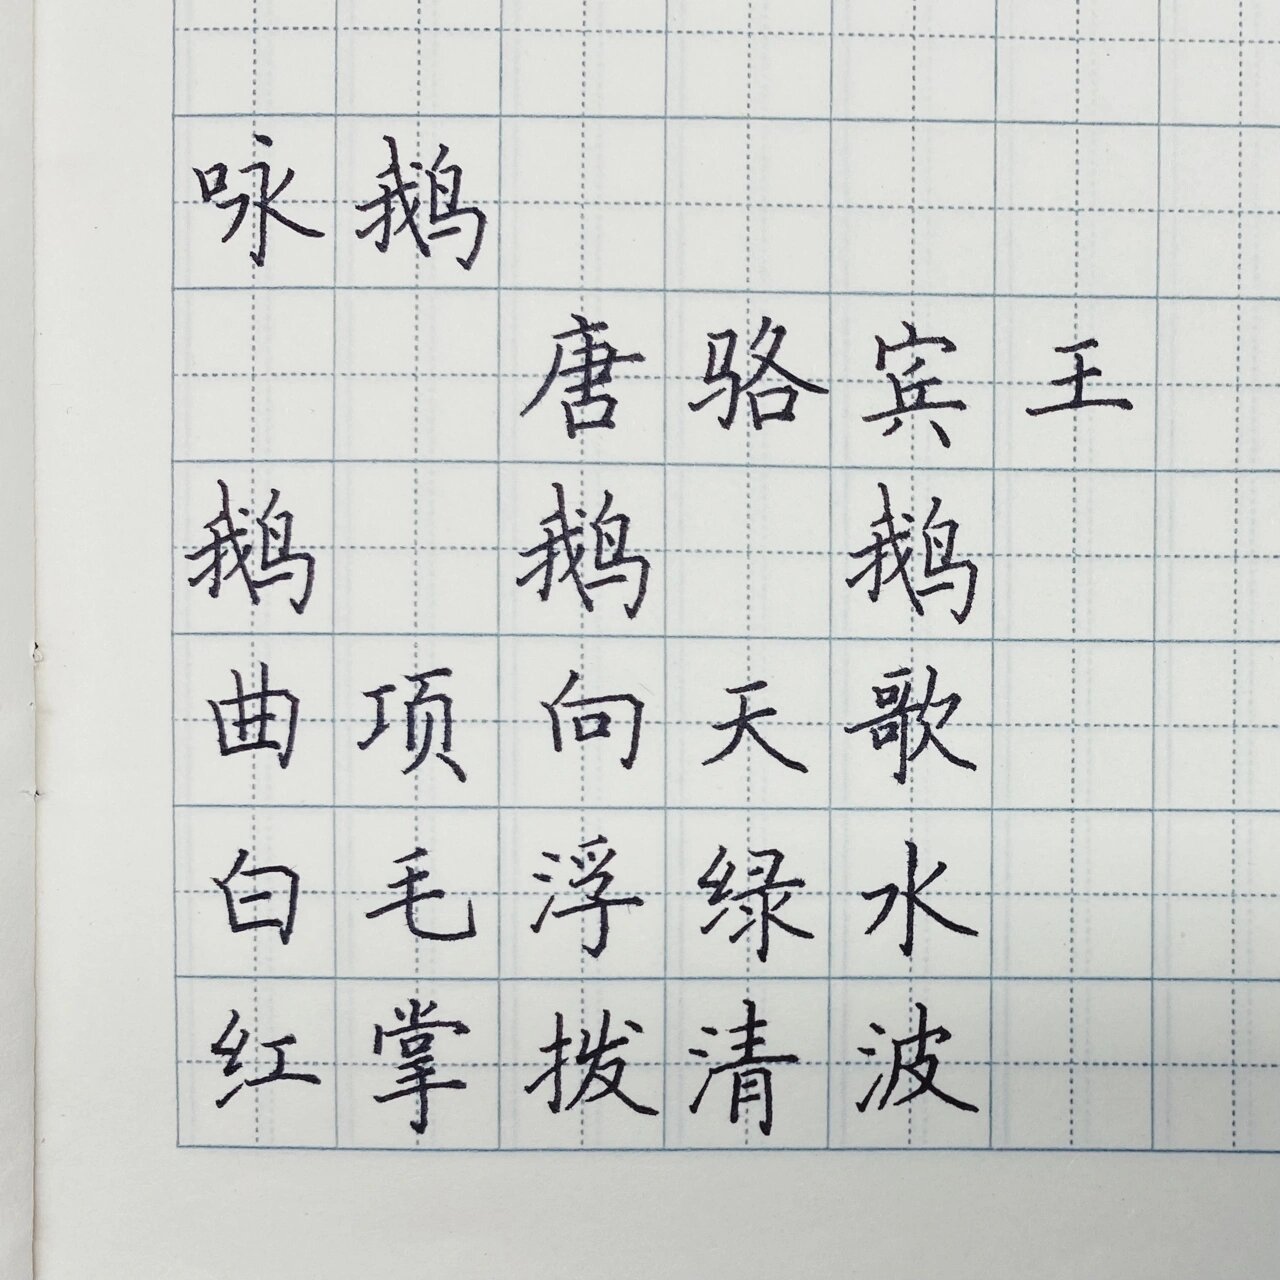 咏鹅
唐 骆宾王
鹅 鹅 鹅
曲项向天歌
白毛浮绿水
红掌拨清波